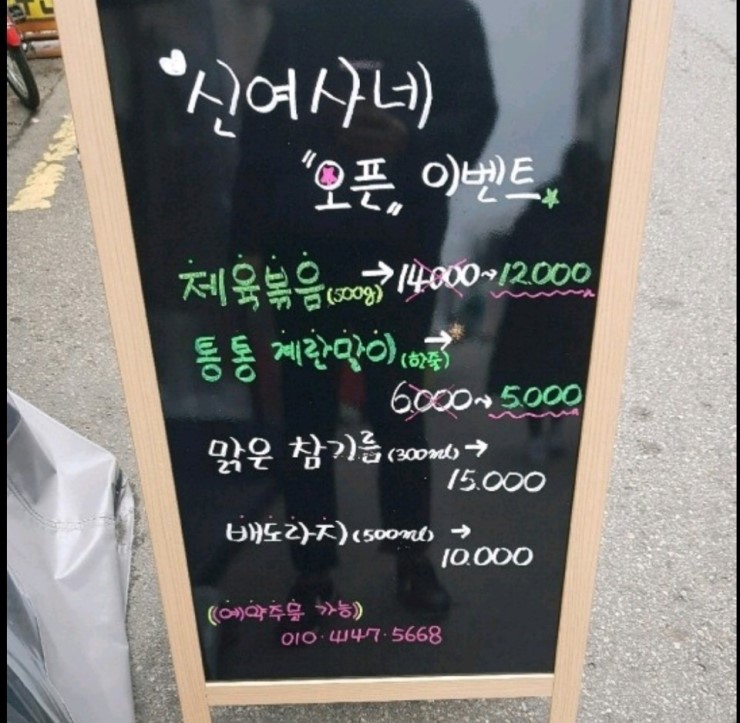 신여사네
"오픈" 이벤트
제육볶음(500g)→14.000~12.000
통통 계란말이(한줄)→
6.000~5.000
맑은 참기름(300ml)→
15.000
배도라지(500ml)→
10.000
((예약주문 가능))
010·4147·5668